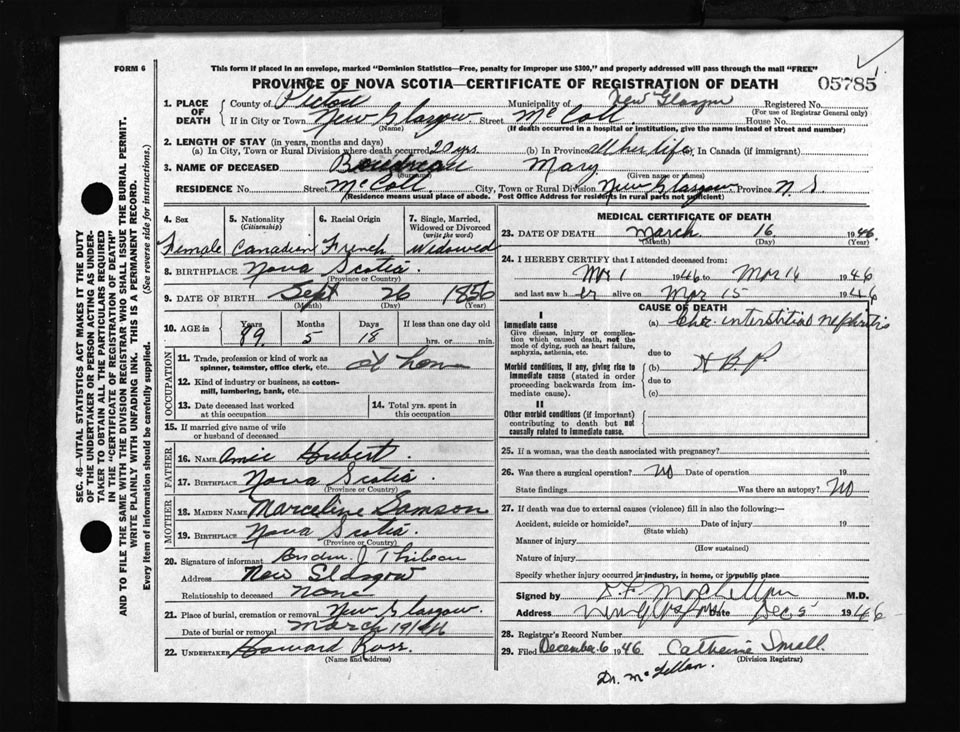 FORM 6
This form if placed in an envelope, marked "Dominion Statistics—Free, penalty for improper use $300," and properly addressed will pass through the mail "FREE"
PROVINCE OF NOVA SCOTIA—CERTIFICATE OF REGISTRATION OF DEATH
05785
1. PLACE OF DEATH
County of Pictou Municipality of New Glasgow Registered No.
(For use of Registrar General only)
If in City or Town New Glasgow Street McColl House No.
(Name) (If death occurred in a hospital or institution, give the name instead of street and number)
2. LENGTH OF STAY (in years, months and days)
(a) In City, Town or Rural Division where death occurred 27 yrs. (b) In Province all her life (c) In Canada (if immigrant)
3. NAME OF DECEASED Boudreau Mary
(Surname) (Given name or names)
RESIDENCE No. Street McColl City, Town or Rural Division New Glasgow Province N. S
(Residence means usual place of abode. Post Office Address for residents in rural parts not sufficient)
SEC. 46—VITAL STATISTICS ACT MAKES IT THE DUTY
OF THE UNDERTAKER OR PERSON ACTING AS UNDER-
TAKER TO OBTAIN ALL THE PARTICULARS REQUIRED
IN THE "CERTIFICATE OF REGISTRATION OF DEATH"
AND TO FILE THE SAME WITH THE DIVISION REGISTRAR WHO SHALL ISSUE THE BURIAL PERMIT.
WRITE PLAINLY WITH UNFADING INK. THIS IS A PERMANENT RECORD.
Every item of information should be carefully supplied. (See reverse side for instructions.)
4. Sex
Female
5. Nationality
(Citizenship)
Canadian
6. Racial Origin
French
7. Single, Married, Widowed or Divorced
(write the word)
Widowed
8. BIRTHPLACE Nova Scotia
(Province or Country)
9. DATE OF BIRTH Sept 26 1856
(Month) (Day) (Year)
10. AGE in Years Months Days If less than one day old
89 5 18 hrs. or min.
OCCUPATION
11. Trade, profession or kind of work as
spinner, teamster, office clerk, etc. at home
12. Kind of industry or business, as cotton-
mill, lumbering, bank, etc.
13. Date deceased last worked
at this occupation
14. Total yrs. spent in
this occupation
15. If married give name of wife
or husband of deceased
FATHER
16. NAME Amie Hubert
17. BIRTHPLACE Nova Scotia
(Province or Country)
MOTHER
18. MAIDEN NAME Marceline Samson
19. BIRTHPLACE Nova Scotia
(Province or Country)
20. Signature of informant J Thibeau
Address New Glasgow
Relationship to deceased None
21. Place of burial, cremation or removal New Glasgow.
Date of burial or removal March 19/46
22. UNDERTAKER Howard Ross.
(Name and address)
MEDICAL CERTIFICATE OF DEATH
23. DATE OF DEATH March 16 1946
(Month) (Day) (Year)
24. I HEREBY CERTIFY that I attended deceased from:
Mar 1 1946 to Mar 16 1946
and last saw her alive on Mar 15 1946
CAUSE OF DEATH
I
Immediate cause
Give disease, injury or complica-
tion which caused death, not the
mode of dying, such as heart failure,
asphyxia, asthenia, etc.
(a) Chr. interstitial nephritis
due to
Morbid conditions, if any, giving rise to
immediate cause (stated in order
proceeding backwards from im-
mediate cause).
(b) H B P
due to
(c)
II
Other morbid conditions (if important)
contributing to death but not
causally related to immediate cause.
25. If a woman, was the death associated with pregnancy?
26. Was there a surgical operation? No Date of operation 19
State findings Was there an autopsy? No
27. If death was due to external causes (violence) fill in also the following:—
Accident, suicide or homicide? Date of injury 19
(State which)
Manner of injury
(How sustained)
Nature of injury
Specify whether injury occurred in industry, in home, or in public place
Signed by McLellan M.D.
Address Date Dec 5 1946
28. Registrar's Record Number
29. Filed December 6 1946 Catherine Small.
(Division Registrar)
Dr. McLellan.